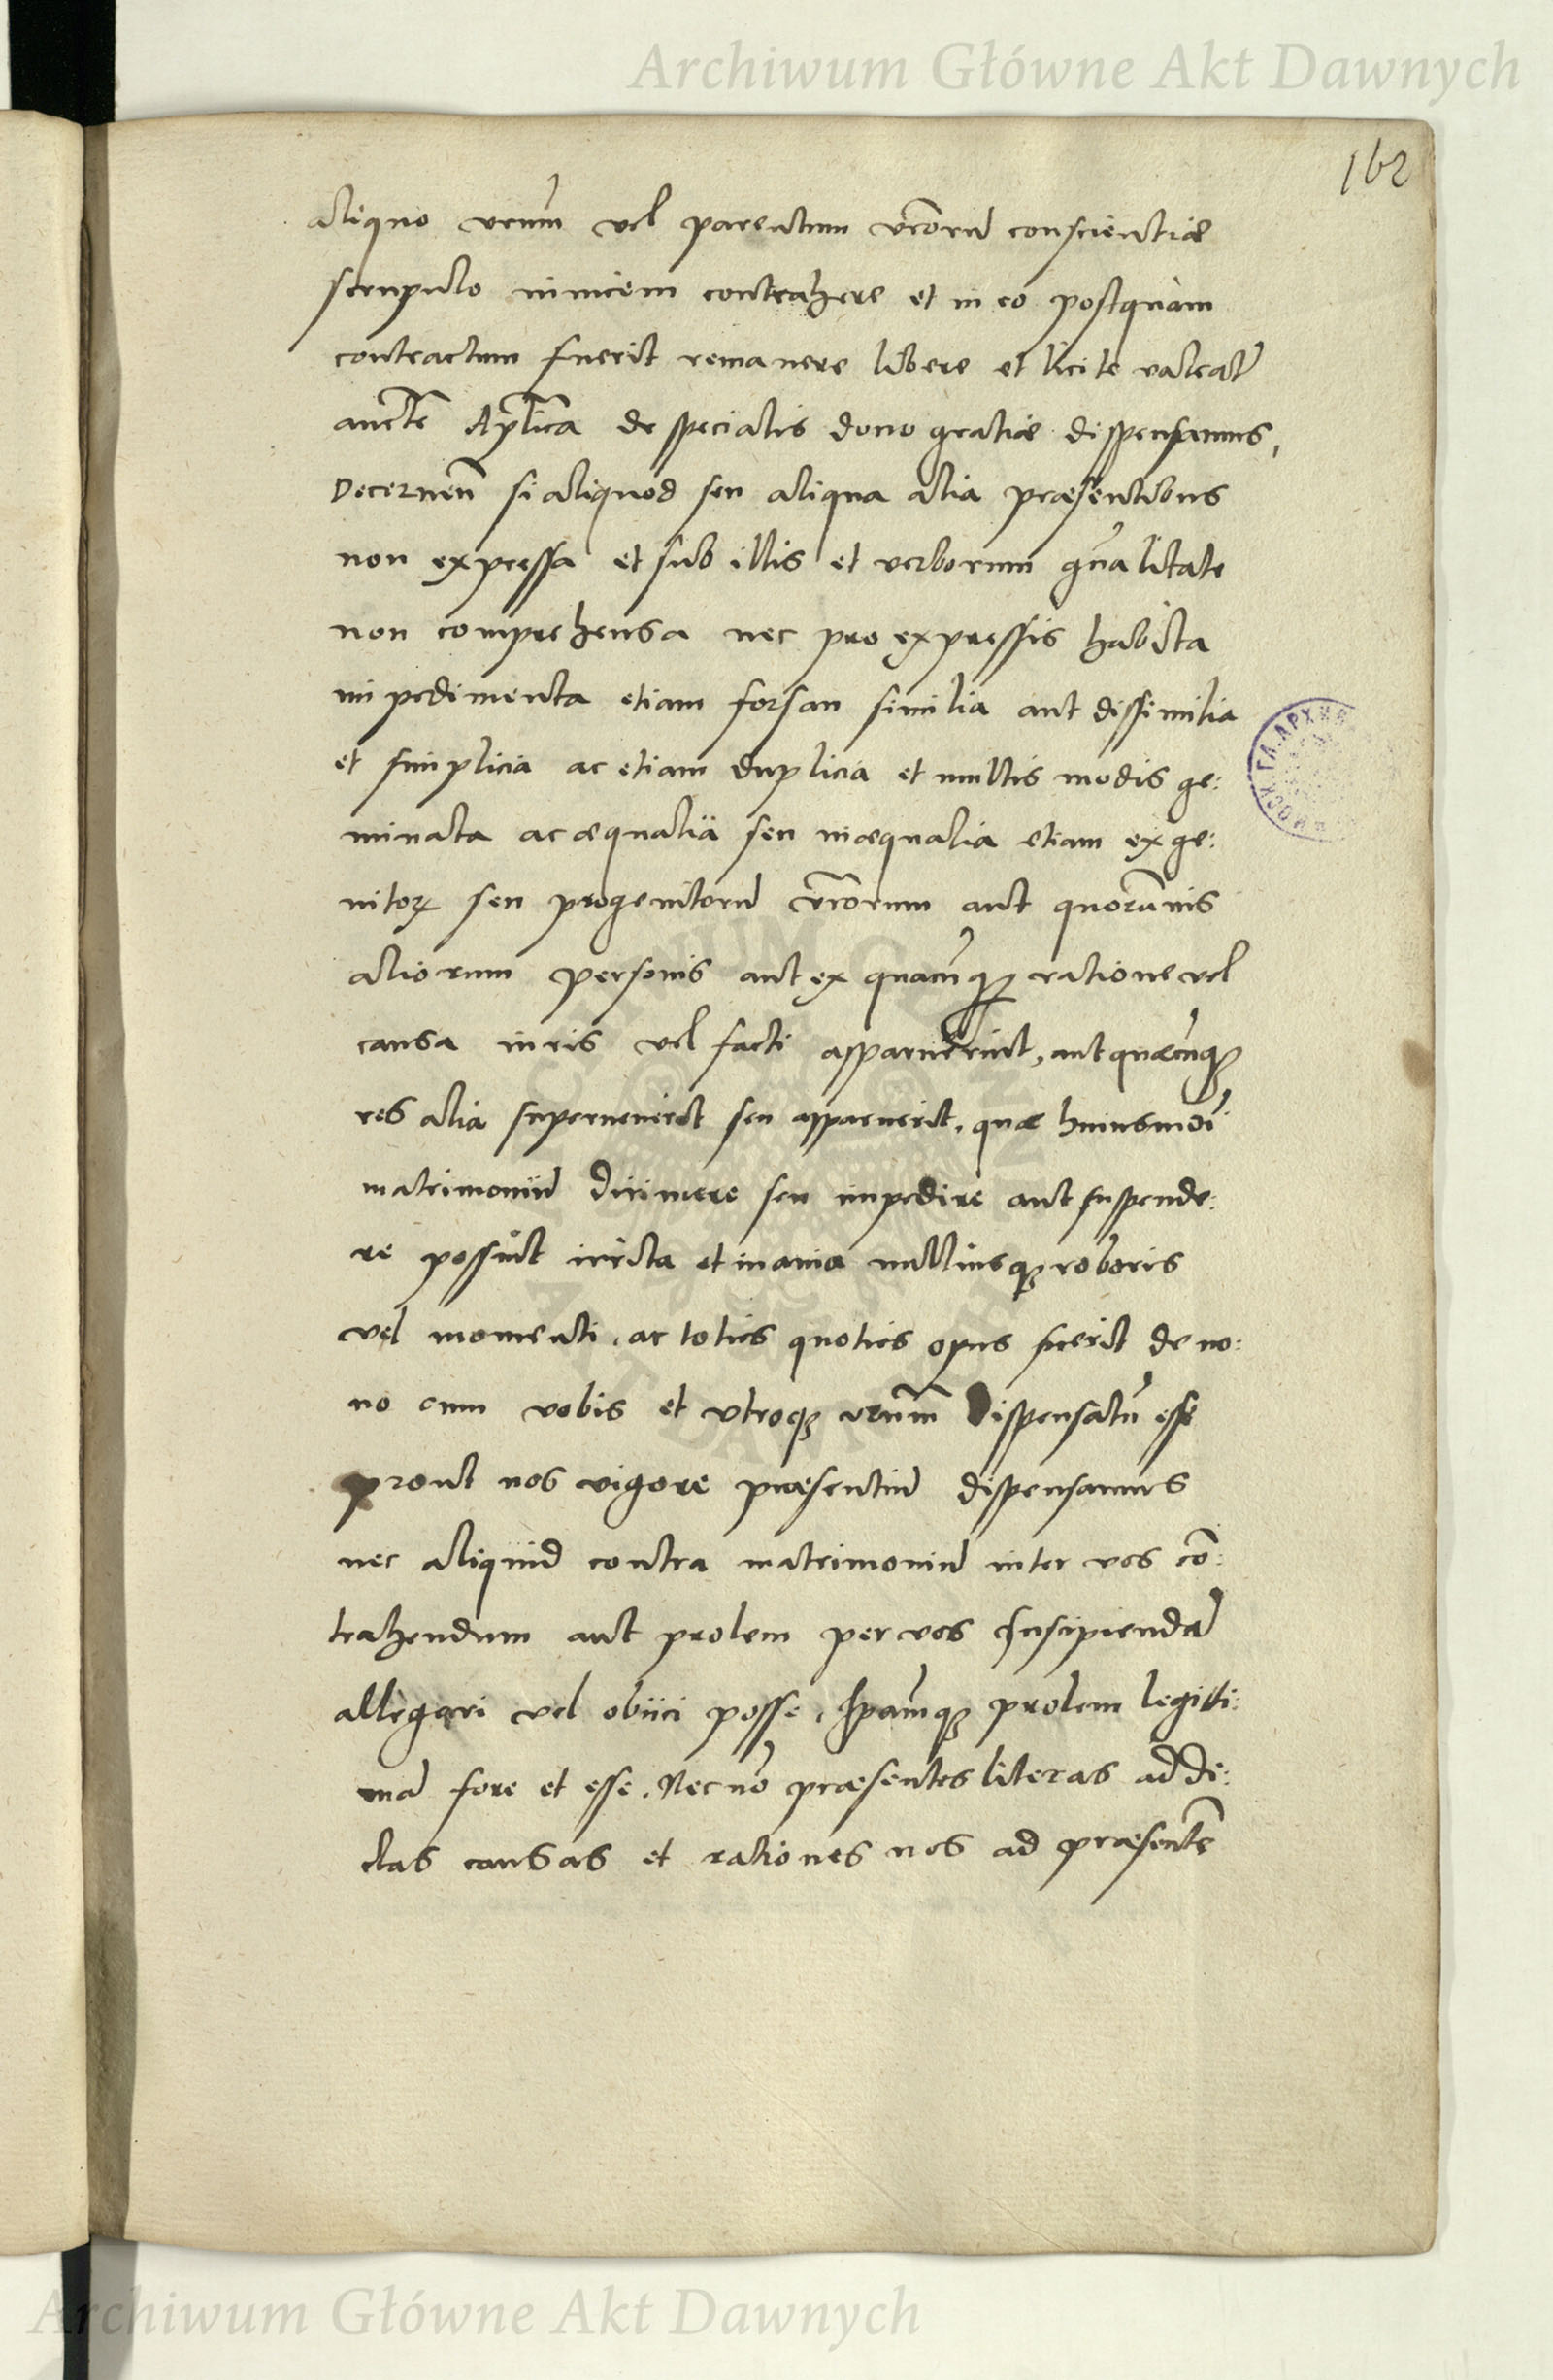 Archiwum Główne Akt Dawnych
162
aliquo vrum vel parentum vrorum conscientiæ
scrupulo inuicem contrahere et in eo postquam
contractum fuerit remanere libere et licite valeatis
aucte Aplica de specialis dono gratiæ dispensamus,
Decernen si aliquod seu aliqua alia præsentibus
non expressa et sub illis et verborum qualitate
non comprehensa nec pro expressis habita
impedimenta etiam forsan similia aut dissimilia
et simplicia ac etiam duplicia et multis modis ge:
minata ac æqualia seu inæqualia etiam ex ge:
nitorꝝ seu progenitorũ vrorum aut quorumuis
aliorum personis aut ex quacunqꝫ ratione vel
causa iuris vel facti apparuerint, aut quæcunqꝫ
res alia superuenerit seu apparuerit, quæ huiusmodi
matrimoniũ dirimere seu impedire aut suspende:
re possint irrita et inania nulliusqꝫ roboris
vel momenti, ac toties quoties opus fuerit de no:
uo cum vobis et vtroqꝫ vrum dispensatũ esse
prout nos vigore præsentiũ dispensamus
nec aliquid contra matrimoniũ inter vos cõ:
trahendum aut prolem per vos suscipiendã
allegari vel obiici posse, Ipamqꝫ prolem legitti:
mã fore et esse. Necnõ præsentes literas ad di:
ctas causas et rationes nos ad præsentẽ
МОСК. ГЛ. АРХИВ
ARCHIWUM GŁÓWNE AKT DAWNYCH
Archiwum Główne Akt Dawnych